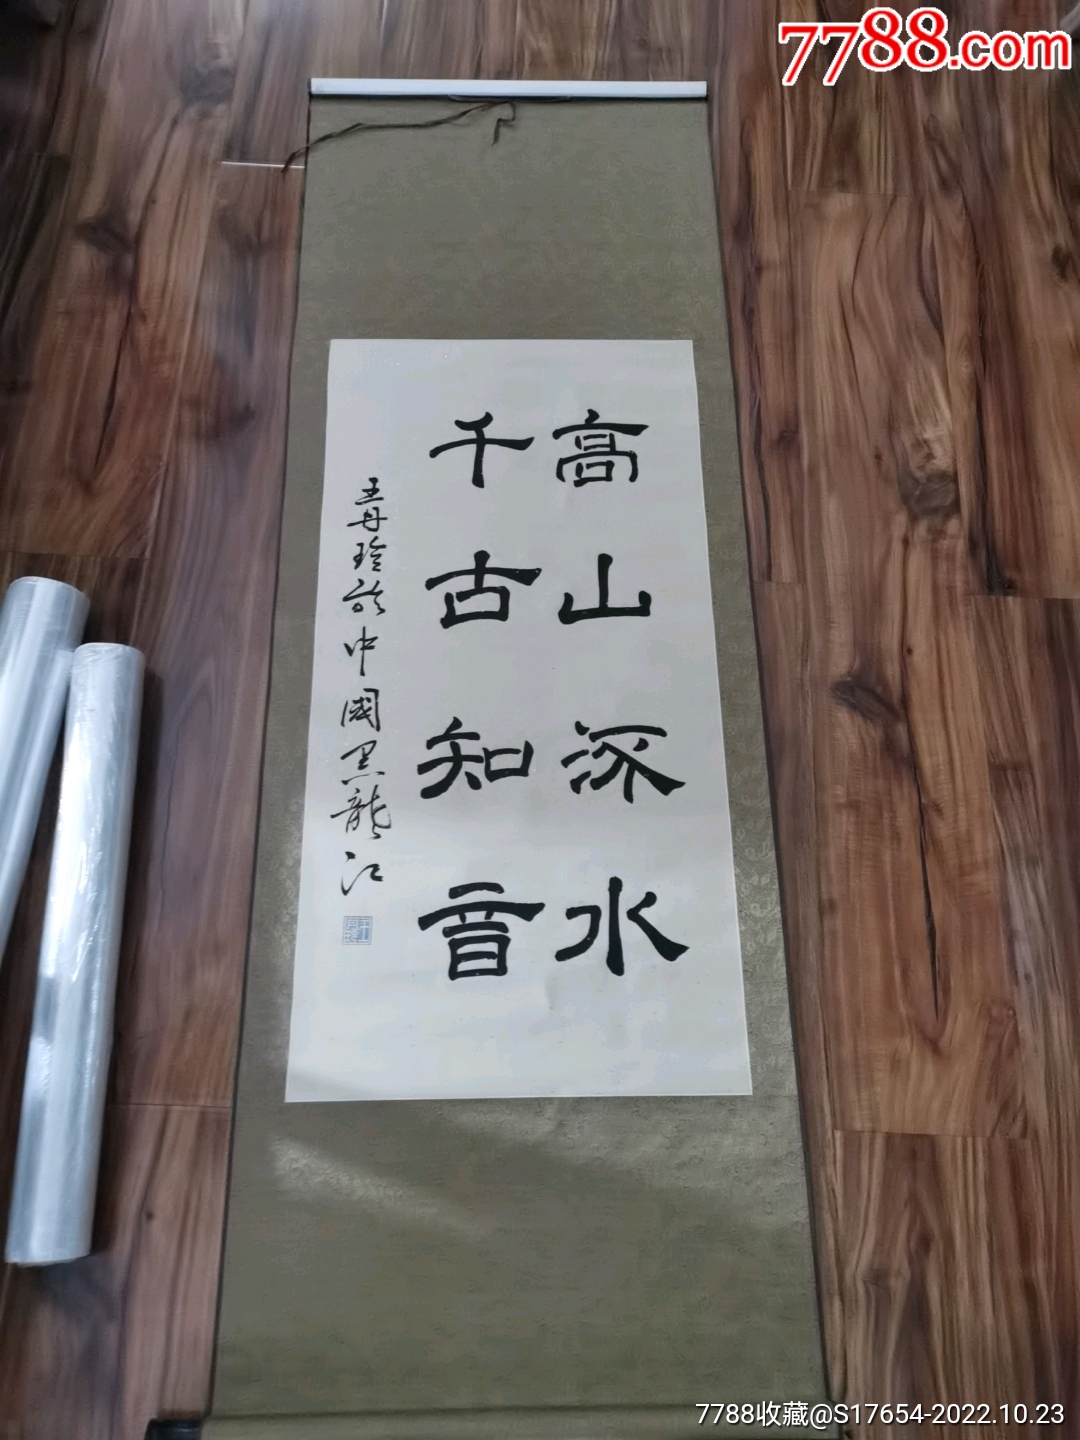 7788.com
高山流水
千古知音
王丹珍於中國黑龍江
7788收藏@S17654-2022.10.23